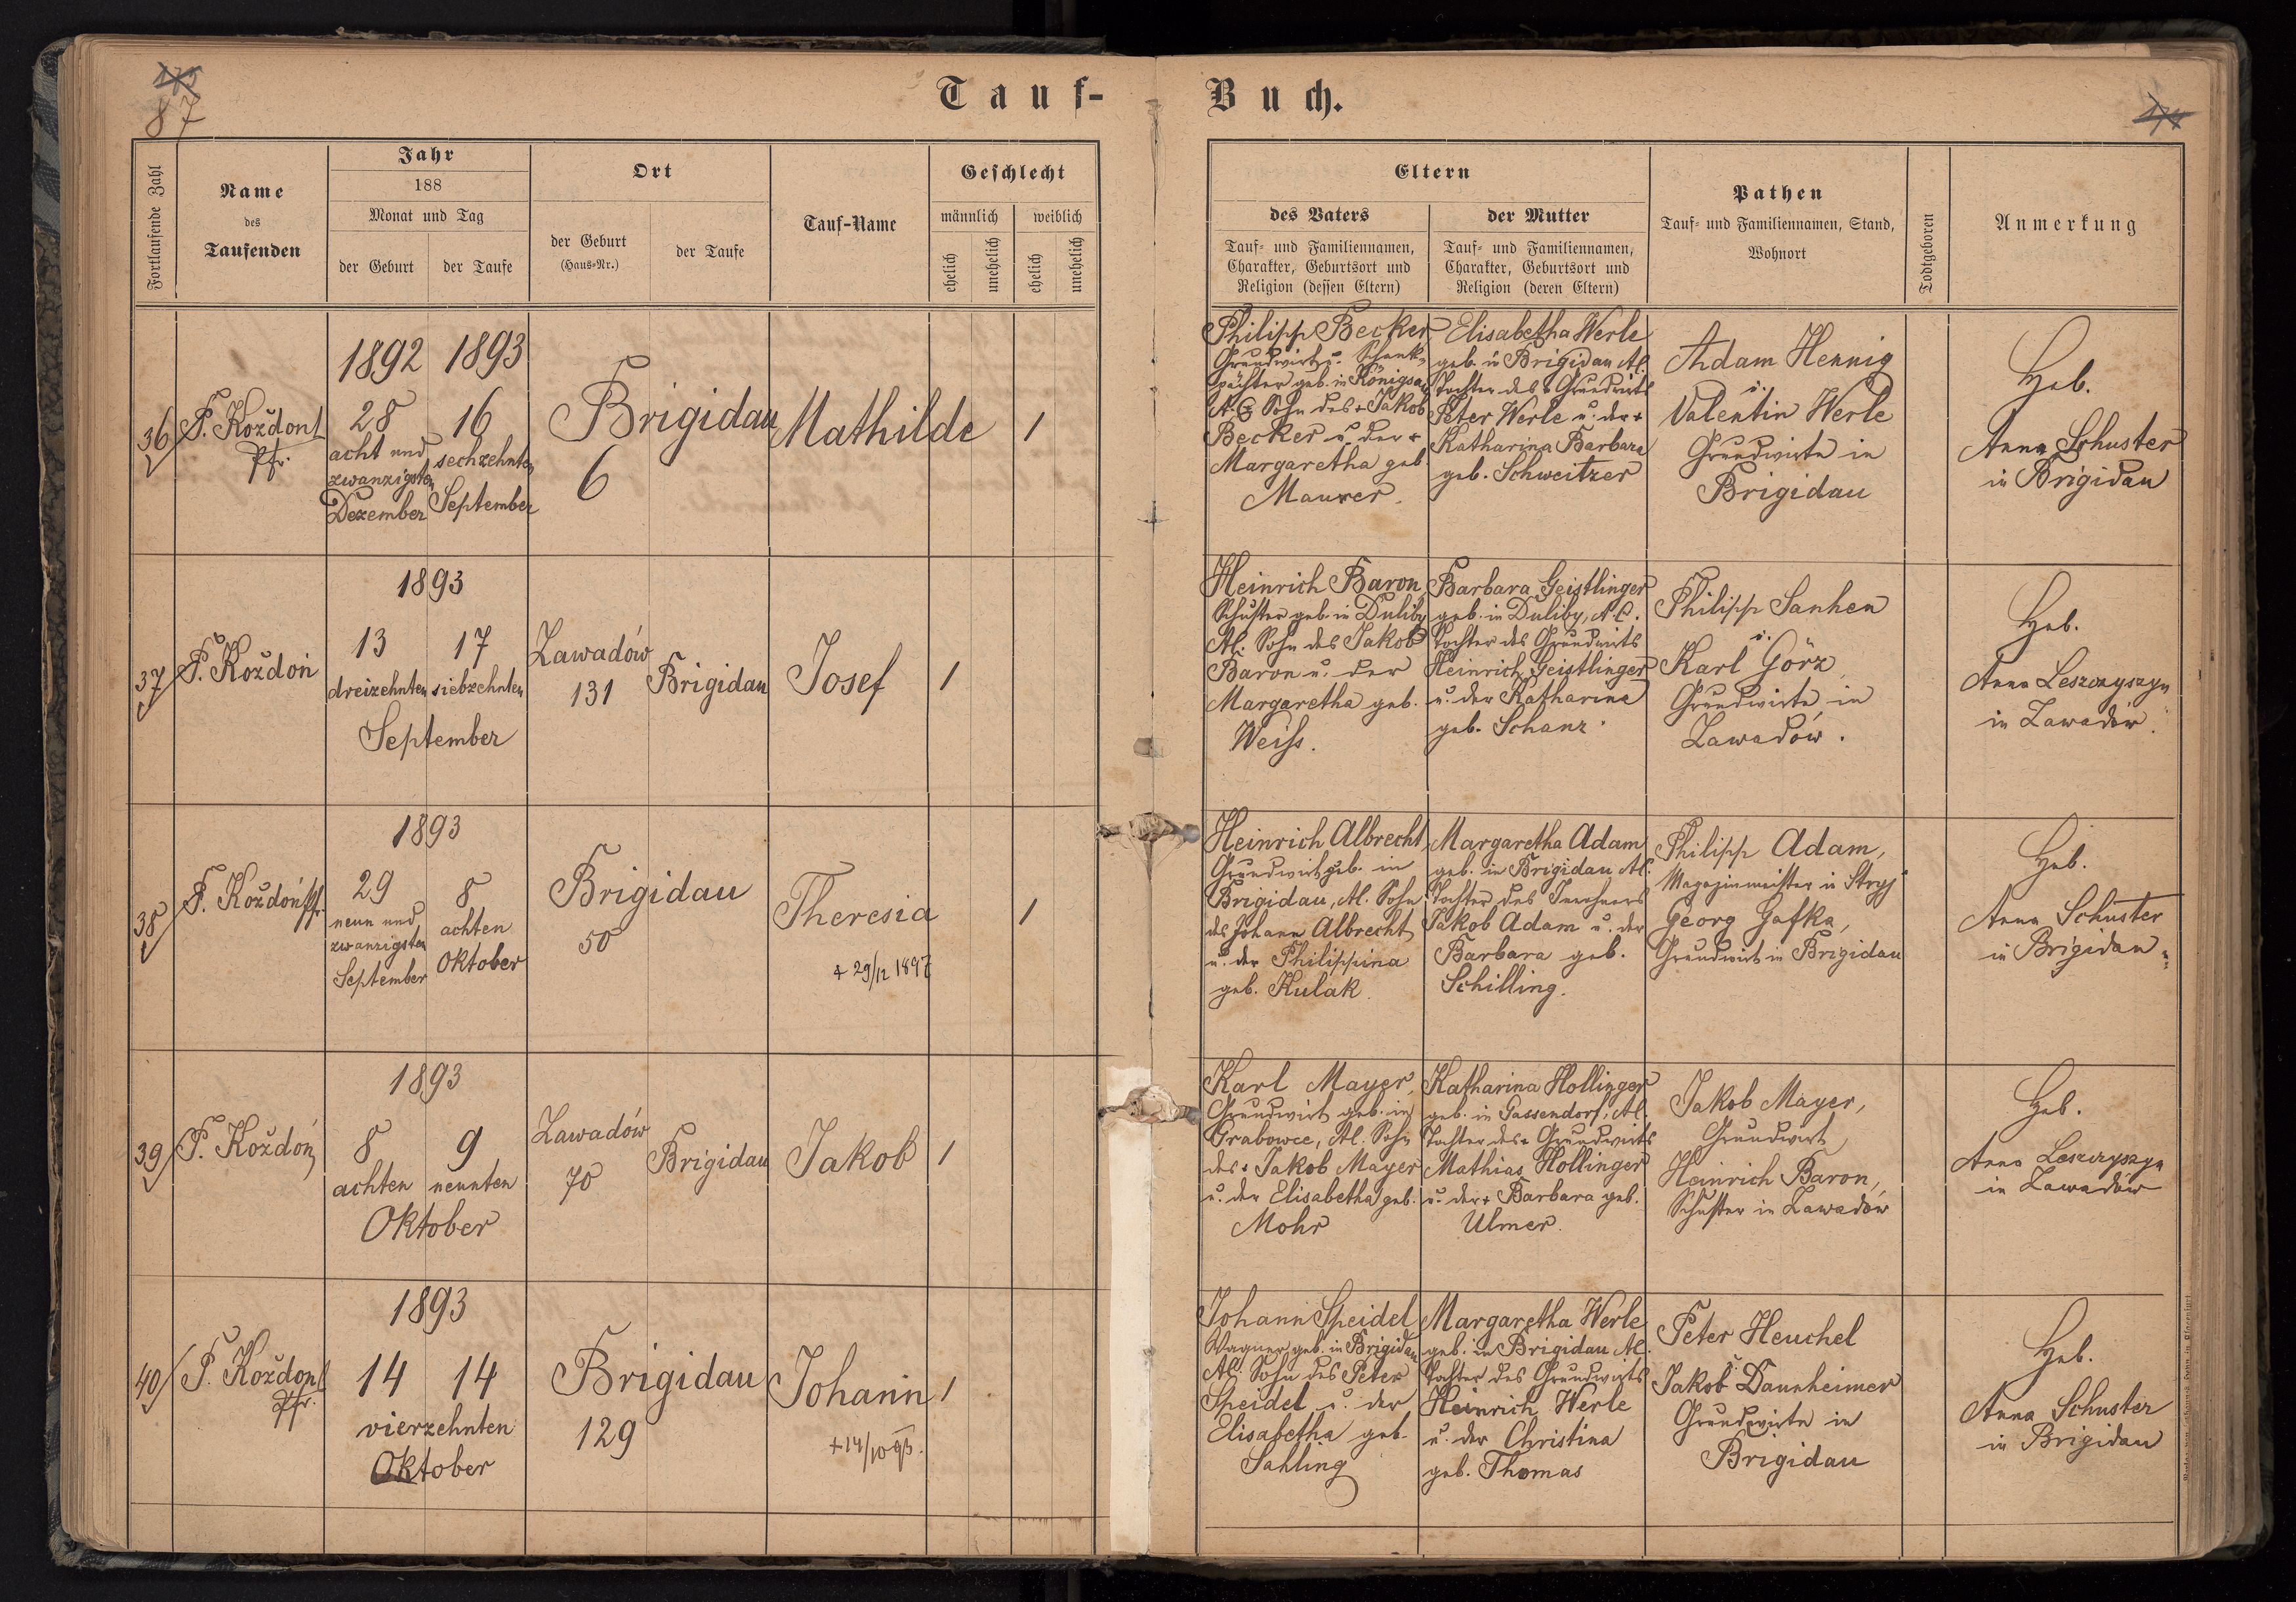 87
Tauf-
Buch.
174
Fortlaufende Zahl
Name
des
Taufenden
Jahr
188
Monat und Tag
der Geburt
der Taufe
Ort
der Geburt
(Haus-Nr.)
der Taufe
Tauf-Name
Geschlecht
männlich
weiblich
ehelich
unehelich
ehelich
unehelich
Eltern
des Vaters
Tauf- und Familiennamen,
Charakter, Geburtsort und
Religion (dessen Eltern)
der Mutter
Tauf- und Familiennamen,
Charakter, Geburtsort und
Religion (deren Eltern)
Pathen
Tauf- und Familiennamen, Stand,
Wohnort
Todtgeboren
Anmerkung
36
P. Koždoń
Pfr.
1892
28
acht und
zwanzigsten
Dezember
1893
16
sechzehnten
September
Brigidau
6
Mathilde
1
Philipp Becker
Grundwirt u. Schenk-
pächter geb. in Königsau
A. C. Sohn des + Jakob
Becker u. der +
Margaretha geb
Maurer.
Elisabetha Werle
geb. in Brigidau AC.
Tochter des + Grundwirts
Peter Werle u. der +
Katharina Barbara
geb. Schweitzer
Adam Hennig
u.
Valentin Werle
Grundwirte in
Brigidau
Heb.
Anna Schuster
in Brigidau
37
P. Koždoń
1893
13
dreizehnten
17
siebzehnten
September
Zawadów
131
Brigidau
Josef
1
Heinrich Baron,
Schuster geb. in Duliby
AC. Sohn des Jakob
Baron u. der
Margaretha geb.
Weiss.
Barbara Geistlinger
geb. in Duliby, A.C.
Tochter des Grundwirts
Heinrich Geistlinger
u. der Katharina
geb. Schanz.
Philipp Sanhen
u.
Karl Görz,
Grundwirte in
Zawadów.
Heb.
Anna Leszczyszyn
in Zawadów.
38
P. Koždoń Pfr.
1893
29
neun und
zwanzigsten
September
8
achten
Oktober
Brigidau
50
Theresia
+ 29/12 1897
1
Heinrich Albrecht,
Grundwirt geb. in
Brigidau, AC. Sohn
des Johann Albrecht
u. der Philippina
geb. Kulak.
Margaretha Adam
geb. in Brigidau AC.
Tochter des Inwohners
Jakob Adam u. der
Barbara geb.
Schilling.
Philipp Adam,
Magazinmeister in Stryj
Georg Gafka,
Grundwirt in Brigidau
Heb.
Anna Schuster
in Brigidau
39
P. Koždoń
1893
8
achten
9
neunten
Oktober
Zawadów
70
Brigidau
Jakob
1
Karl Mayer,
Grundwirt geb. in
Grabowce, AC. Sohn
des + Jakob Mayer
u. der Elisabetha geb.
Mohr
Katharina Hollinger
geb. in Gassendorf, AC.
Tochter des + Grundwirts
Mathias Hollinger
u. der + Barbara geb.
Ulmer.
Jakob Mayer,
Grundwirt,
Heinrich Baron,
Schuster in Zawadów
Heb.
Anna Leszczyszyn
in Zawadów
40
P. Koždoń
Pfr.
1893
14
14
vierzehnten
Oktober
Brigidau
129
Johann
+ 14/10 93.
1
Johann Speidel
Wagner geb. in Brigidau
AC. Sohn des Peter
Speidel u. der
Elisabetha geb.
Sahling
Margaretha Werle
geb. in Brigidau AC.
Tochter des Grundwirts
Heinrich Werle
u. der Christina
geb. Thomas
Peter Heuchel
u.
Jakob Dannheimer
Grundwirte in
Brigidau
Heb.
Anna Schuster
in Brigidau